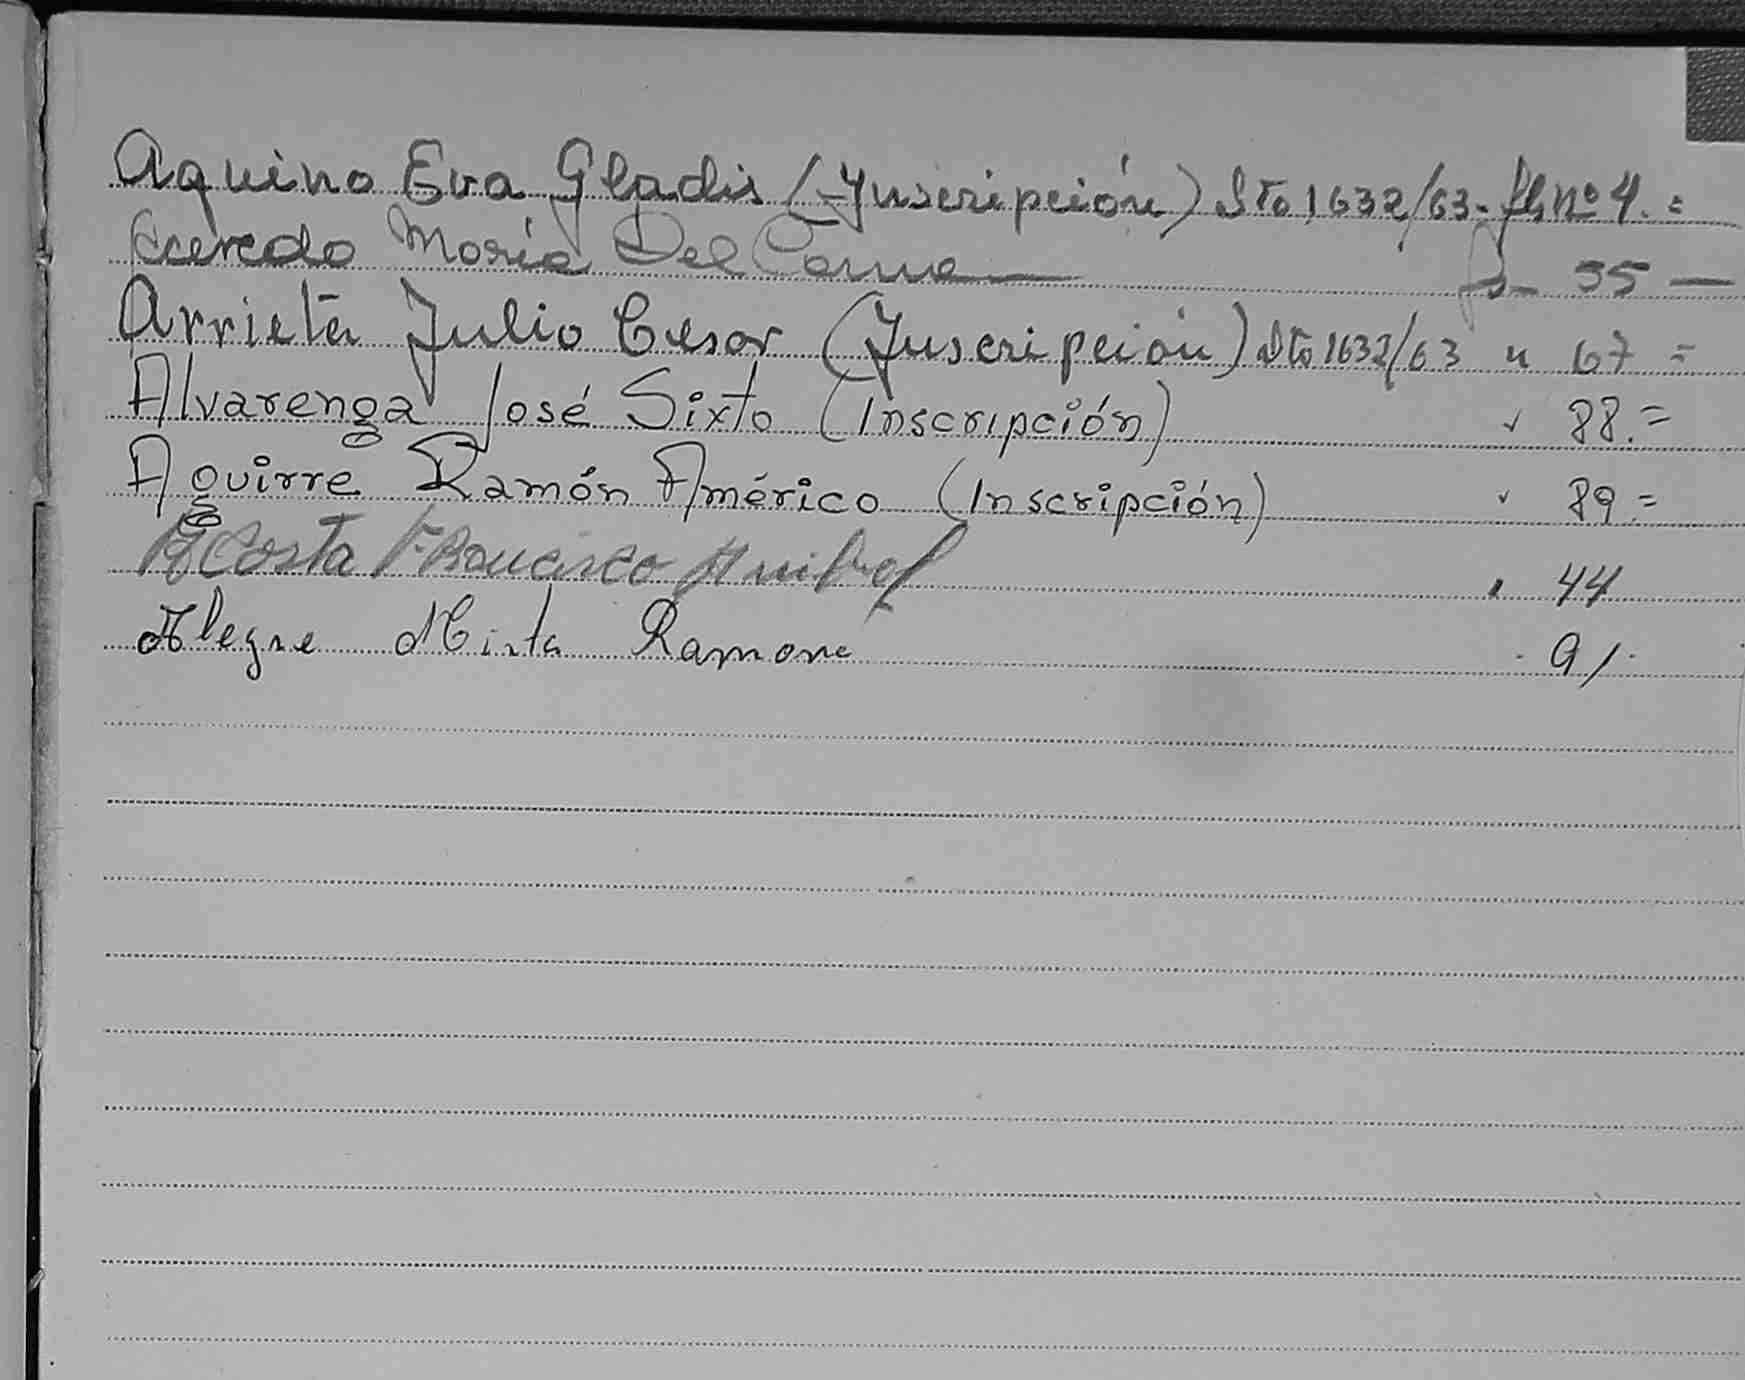 Aquino Eva Gladis (Inscripción) Dto 1632/63. fs nº 4. =
Acevedo Maria Del Carme fs 55 —
Arrieta Julio Cesar (Inscripción) Dto 1632/63 " 67 =
Alvarenga José Sixto (Inscripción) " 88.=
Aguirre Ramón Américo (Inscripción) " 89.=
Acosta Francisco Anibal " 44
Alegre Mirta Ramona . 91.